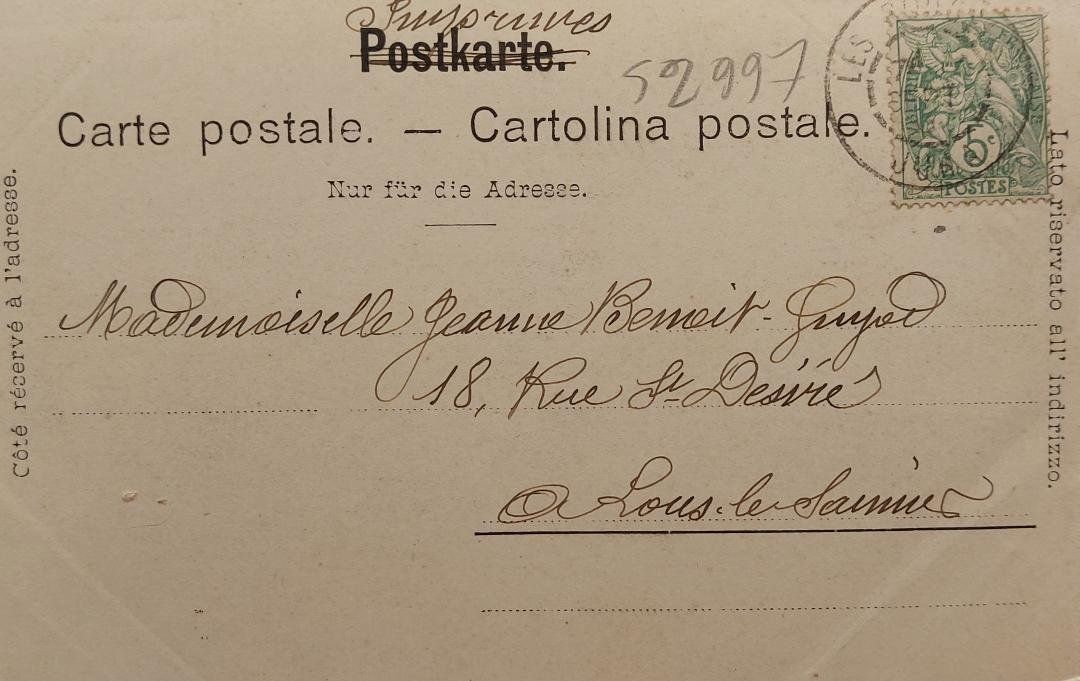 Imprimés
Postkarte.
52997
Carte postale. — Cartolina postale.
Nur für die Adresse.
Côté réservé à l'adresse.
Lato riservato all' indirizzo.
LES
5c
POSTES
Mademoiselle Jeanne Benoit-Guyod
18, Rue St Désiré
à Lons-le-Saunier